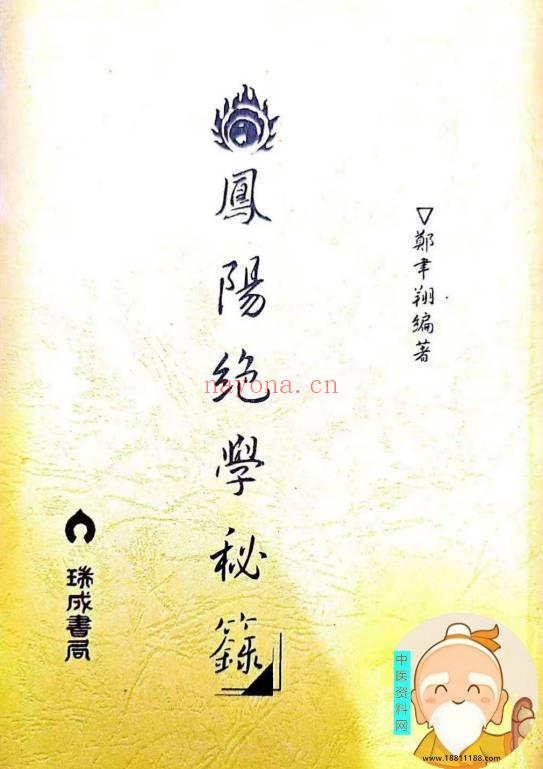 ▽鄭聿翔編著
鳳陽絕學秘籙
瑞成書局
nayona.cn
中医资料网
www.18811188.com